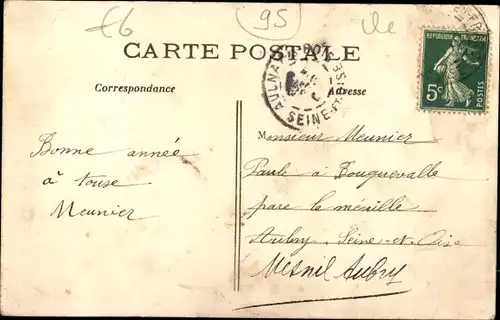 £6
95
Ile
CARTE POSTALE
Correspondance
Adresse
AULNAY
SEINE-ET-OISE
REPUBLIQUE FRANÇAISE
5c
Bonne année
à touse
Meunier
Monsieur Meunier
Paule à Bouquevalle
pare le ménille
Aubry Seine-et-Oise
Mesnil Aubry